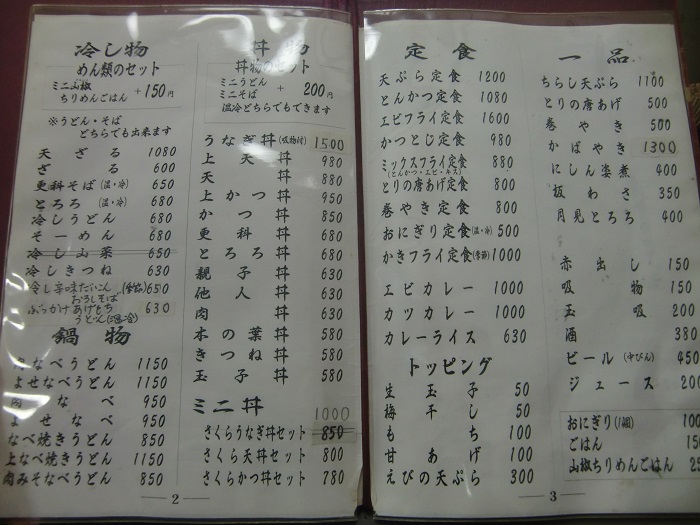 冷し物
めん類のセット
ミニ山椒
ちりめんごはん + 150円
※うどん・そば
どちらでも出来ます
天ざる 1080
ざる 600
更科そば(温・冷) 650
とろろ(温・冷) 680
冷しうどん 680
そーめん 680
冷し山菜 650
冷しきつね 630
冷し辛味だいこん 650
おろしそば
ぶっかけあげもち 630
うどん(温・冷)
鍋物
肉なべうどん 1150
よせなべうどん 1150
肉なべ 950
よせなべ 950
なべ焼きうどん 850
上なべ焼きうどん 1150
肉みそなべうどん 850
2
丼物
丼物のセット
ミニうどん
ミニそば + 200円
温冷どちらでもできます
うなぎ丼(吸物付) 1500
上天丼 980
天丼 880
上かつ丼 950
かつ丼 850
更科丼 680
とろろ丼 680
親子丼 630
他人丼 630
肉丼 630
木の葉丼 580
きつね丼 580
玉子丼 580
ミニ丼
1000
さくらうなぎ丼セット 850
さくら天丼セット 800
さくらかつ丼セット 780
定食
天ぷら定食 1200
とんかつ定食 1080
エビフライ定食 1600
かつとじ定食 980
ミックスフライ定食 880
(とんかつ・エビ・キス)
とりの唐あげ定食 800
巻やき定食 800
おにぎり定食(温・冷) 500
かきフライ定食(季節) 1000
エビカレー 1000
カツカレー 1000
カレーライス 630
トッピング
生玉子 50
梅干し 50
もち 100
甘あげ 100
えびの天ぷら 300
3
一品
ちらし天ぷら 1100
とりの唐あげ 500
巻やき 500
かばやき 1300
にしん姿煮 400
板わさ 350
月見とろろ 400
赤出し 150
吸物 150
玉吸 200
酒 380
ビール(中びん) 450
ジュース 200
おにぎり(1組) 100
ごはん 150
山椒ちりめんごはん